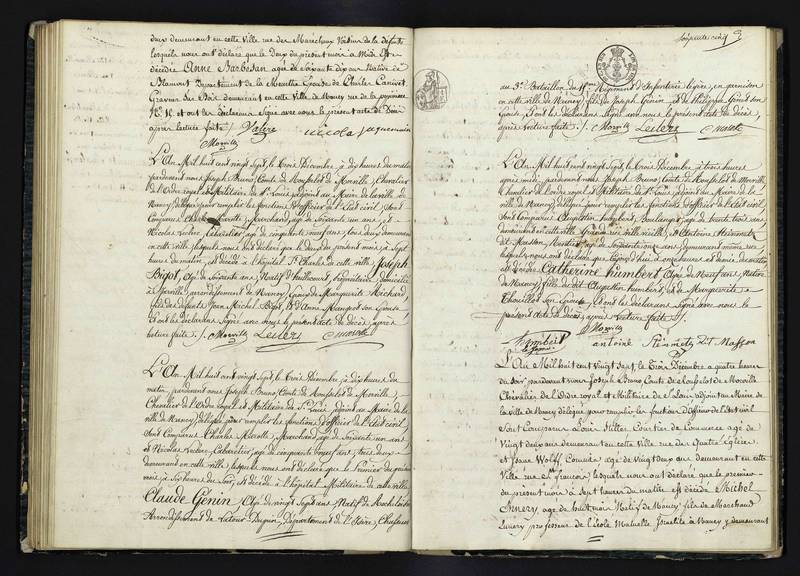 deux demeurant en cette Ville rue des Marechaux Voisin de la défunte
lesquels nous ont déclaré que le deux du présent mois à Midi Est
décédée Anne Barbesan agée de soixante dix ans Native de
Blamont Département de la Meurthe Epouse de Charles Canivet
Graveur sur Bois demeurant en cette Ville de Nancy rue de la pépinière
N° 16 et ont les déclarans Signé avec nous le présent acte de décès
après lecture faite
L'An Mil huit cent vingt sept, le Trois Décembre, à dix heures du matin
pardevant nous Joseph, Bruno, Comte de Rouffelot de Morville, Chevalier
de l'Ordre royal et Militaire de St Louis, adjoint au Maire de la ville de
Nancy, délégué pour remplir les fonctions d'officier de l'Etat civil, Sont
Comparus Charles Marotte, Marchand, agé de Soixante un ans, et
Nicolas Leclerc, Cabaretier, agé de cinquante neuf ans, tous deux demeurant
en cette ville, lesquels nous ont déclaré que le deux du présent mois, à Sept
heures du matin, est décédé à l'hôpital St Charles de cette ville, Joseph
Bigot, Agé de Soixante ans, Natif d'
arrondissement de Nancy, Epoux de Marguerite Richard,
fils des défunts Jean Michel Bigot, & d'Anne Mangeot son Epouse,
Et ont les déclarans Signé avec nous le présent acte de décès, après
lecture faite ./. Morville Leclerc Marotte
L'An Mil huit cent vingt Sept, le Trois Décembre, à dix heures du
matin, pardevant nous Joseph, Bruno, Comte de Rouffelot de Morville,
Chevalier de l'Ordre royal et Militaire de St Louis, adjoint au Maire de la
ville de Nancy, délégué pour remplir les fonctions d'officier de l'Etat civil,
Sont Comparus Charles Marotte, Marchand, agé de Soixante un ans,
et Nicolas Leclerc, Cabaretier, agé de cinquante neuf ans, tous deux
demeurant en cette ville, lesquels nous ont déclaré que le Premier du présent
mois, à Six heures du Soir, est décédé à l'hôpital Militaire de cette ville
Claude Genin, Agé de vingt Sept ans, Natif de
Arrondissement de Latour Dupin, Département de l'Isère, Chasseur
au 3e Bataillon du Régiment d'Infanterie légère, en garnison
en cette ville de Nancy, fils de Joseph Genin, & de Philippe Genin son
Epouse, Et ont les déclarans Signé avec nous le présent acte de décès,
après lecture faite ./. Morville Leclerc Marotte
L'An Mil huit cent vingt Sept, le Trois Décembre, à trois heures
après midi, pardevant nous Joseph, Bruno, Comte de Rouffelot de Morville,
Chevalier de l'Ordre royal & Militaire de St Louis, adjoint au Maire de la
ville de Nancy, délégué pour remplir les fonctions d'officier de l'Etat civil,
Sont Comparus Augustin humbert, Boulanger, agé de trente trois ans,
demeurant en cette ville, & Antoine Steinmetz
dit Masson, Rentier, agé de Soixante onze ans, demeurant même rue,
lesquels nous ont déclaré que à onze heures et demie du matin
est décédée Catherine humbert, Agée de Neuf ans, Native
de Nancy, fille du dit Augustin humbert, & de Marguerite
Thouillot son Epouse, Et ont les déclarans Signé avec nous le
présent acte de décès, après lecture faite ./.
Morville
humbert antoine Steinmetz dit Masson
L'An Mil huit cent vingt sept, le Trois Décembre à quatre heures
du Soir, pardevant nous Joseph Bruno Comte de Rouffelot de Morville
Chevalier de l'Ordre royal et Militaire de St Louis adjoint au Maire de
la ville de Nancy délégué pour remplir les fonctions d'officier de l'Etat Civil
Sont Comparus Courtier de Commerce agé de
Vingt deux ans demeurant en cette Ville rue des Quatre Eglises
et Isaac Wolff Commis agé de Vingt deux ans demeurant en cette
Ville lesquels nous ont déclaré que le premier
du présent mois à Sept heures du matin est décédé Michel
agé de huit mois Natif de Nancy fils de Marchand
professeur de l'école Mutuelle Israelite à Nancy y demeurant